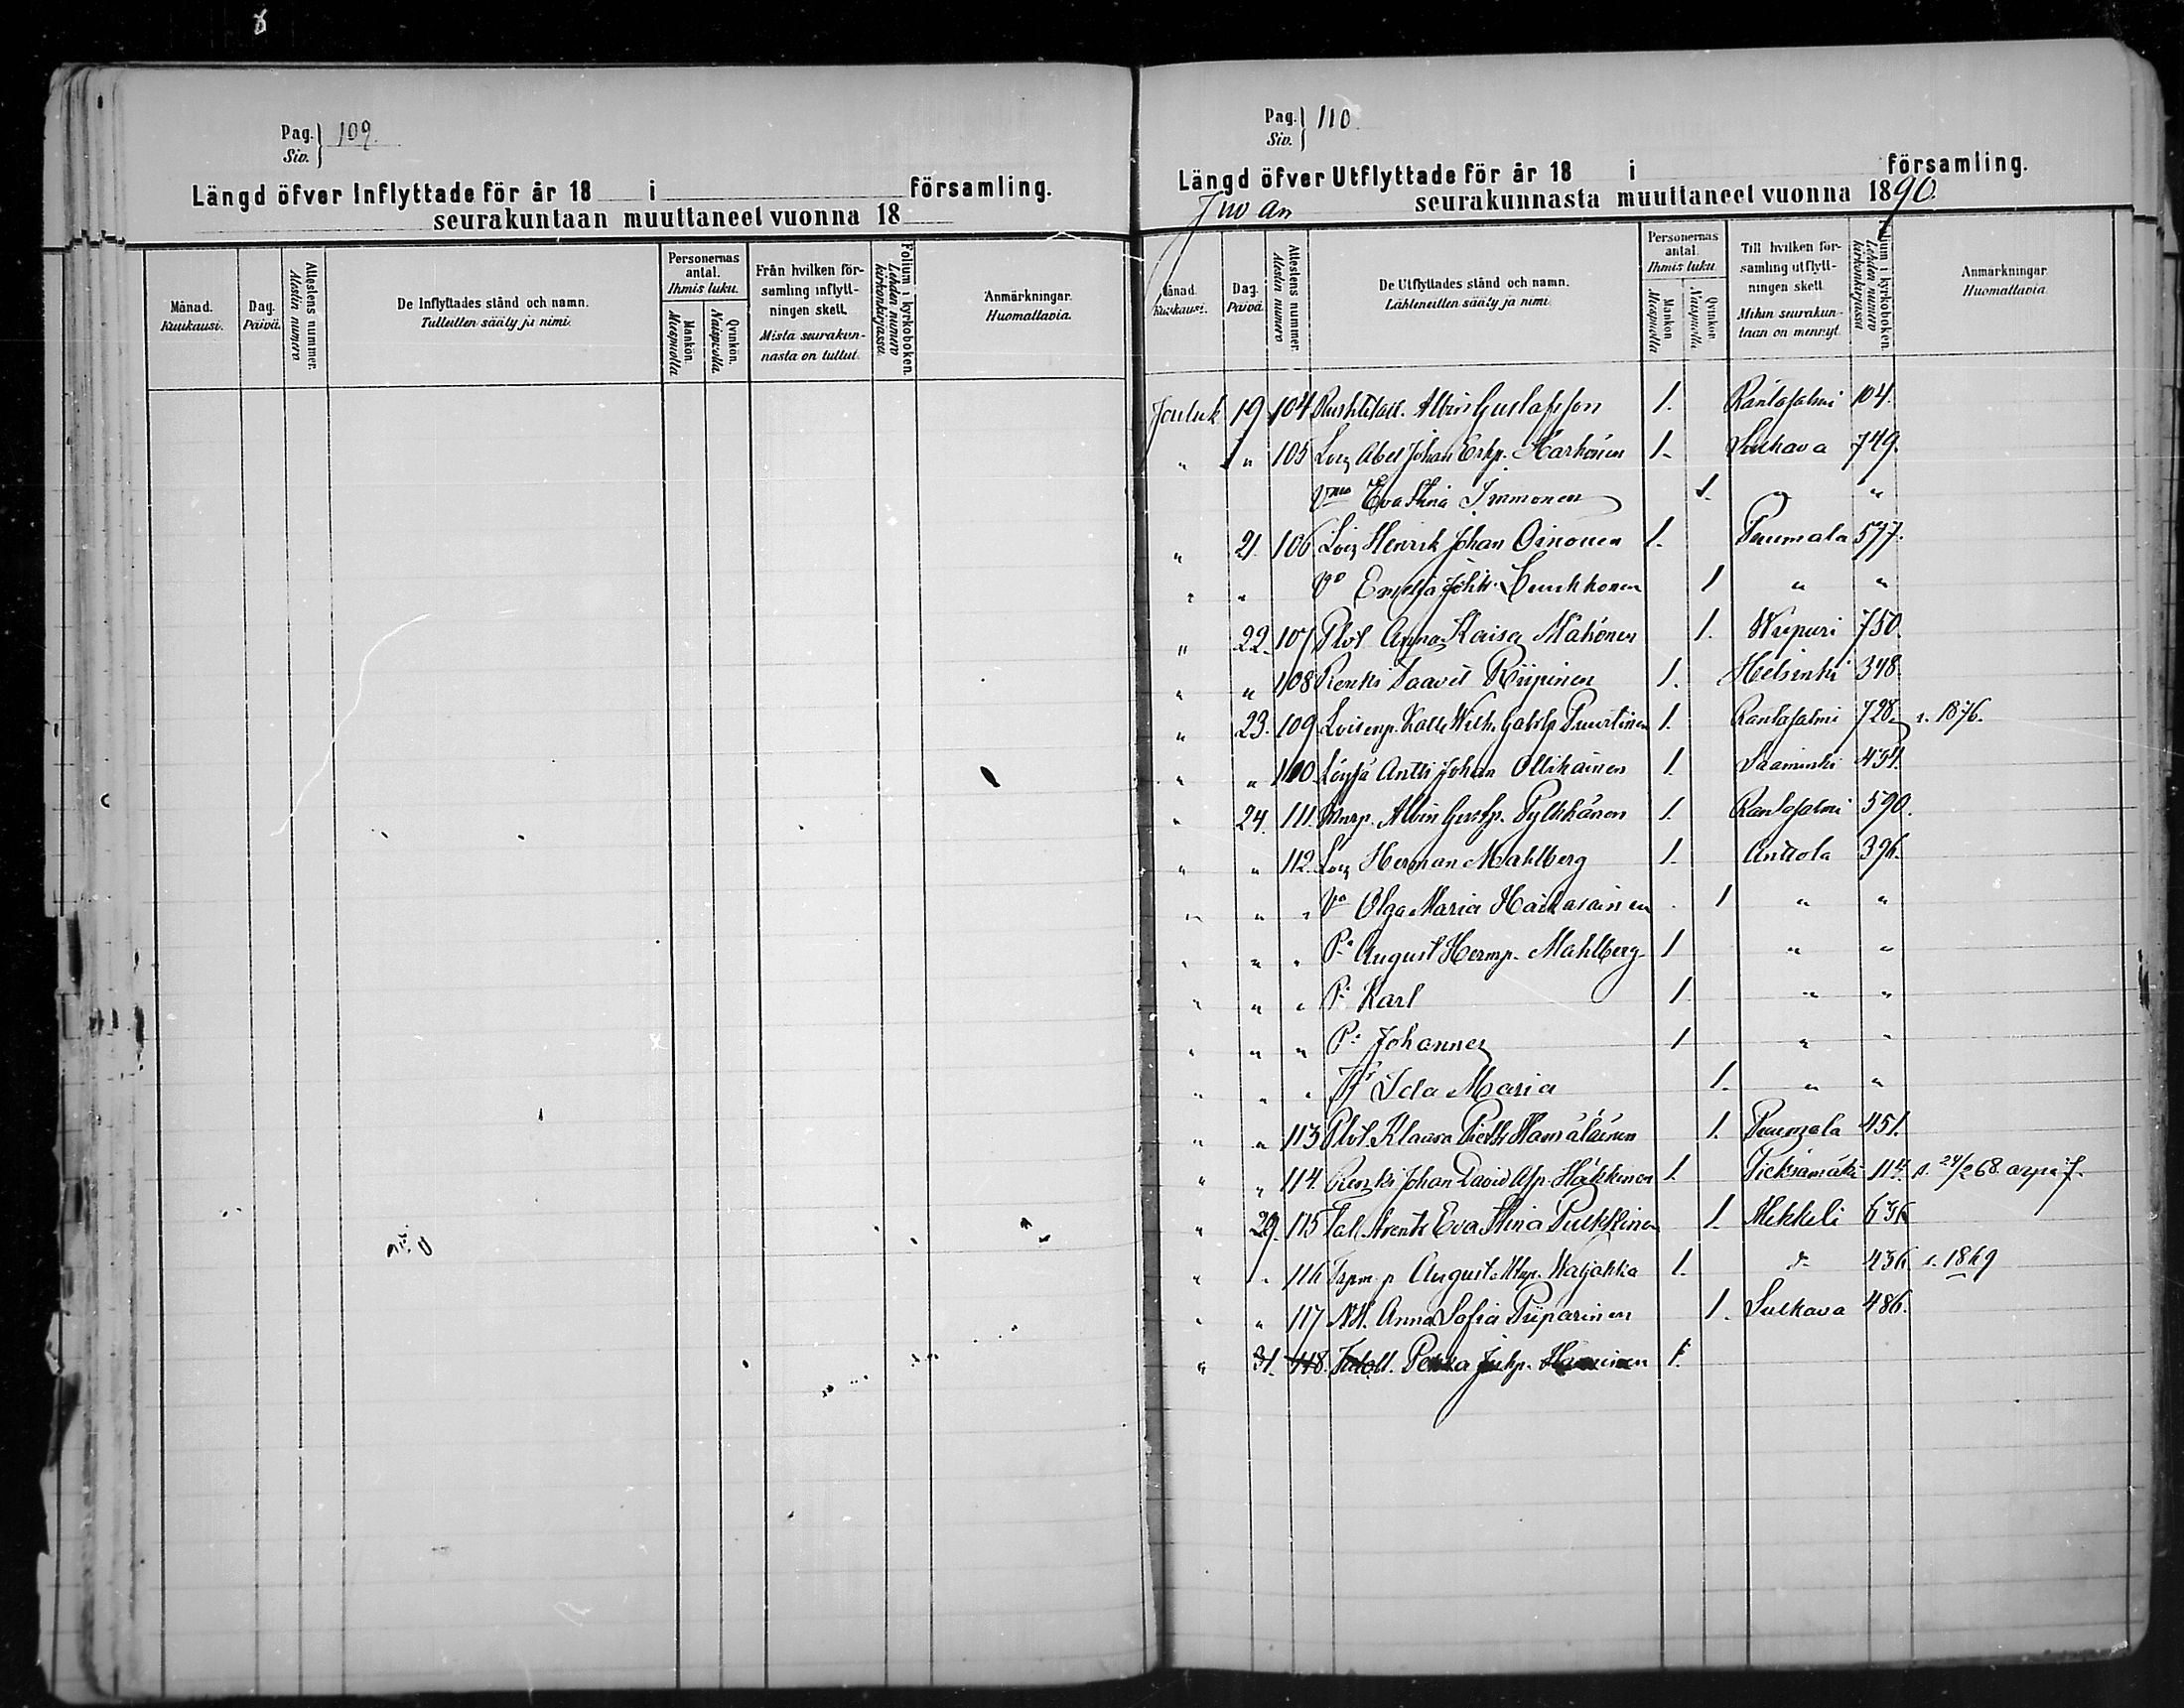 Pag. 109.
Siv.
Längd öfver Inflyttade för år 18 i församling.
seurakuntaan muuttaneet vuonna 18
Månad. Kuukausi.
Dag. Päivä.
Attestens nummer. Alestin numero
De Inflyttades stånd och namn.
Tulleitten sääty ja nimi.
Personernas antal. Ihmis luku.
Mankön. Miespuolia
Qvinkön. Naispuolia
Från hvilken församling inflyttningen skett.
Mista seurakunnasta on tullut.
Folium i kyrkoboken. Lehden numero kirkonkirjassa.
Anmärkningar. Huomattavia.
Pag. 110
Siv.
Längd öfver Utflyttade för år 18 i församling.
Juvan seurakunnasta muuttaneet vuonna 1890.
Månad. Kuukausi.
Dag. Päivä
Attestens nummer. Alestin numero
De Utflyttades stånd och namn.
Lähteneitten sääty ja nimi.
Personernas antal. Ihmis luku
Mankön Miespuolia
Qvinkön Naispuolia
Till hvilken församling utflyttningen skett.
Mihin seurakuntaan on mennyt.
Folium i kyrkoboken. Lehden numero kirkonkirjassa
Anmärkningar Huomattavia
Jouluk 19 104 Albin Gustafsson 1. Rantasalmi 104.
" " 105 Loiz Abel Johan Erkp. Härkönen 1. Sulkava 749.
Vmo Eva Stina Immonen 1. " "
" 21. 106 Loiz Henrik Johan Oinonen 1. Puumala 577.
" " Vo Emelia Johtr. Luukkonen 1 " "
" 22. 107 Plot Anna Kaisa Mähönen 1. Wiipuri 750.
" " 108 Renki Taavit Riipinen 1. Helsinki 348.
" 23. 109 Loisenp. Kalle Wilh. Gabrp. Puurtinen 1. Rantasalmi 728. s. 1876.
" " 110 Antti Johan Ollikainen 1. Sääminki 454.
" 24. 111. Albin Gustp. Pylkkänen 1. Rantasalmi 590.
" " 112. Loiz Herman Mahlberg 1. Anttola 396.
" " " Vo Olga Maria 1 " "
" " " Pa August Hermp. Mahlberg 1 " "
" " " Pa Karl 1 " "
" " " Pa Johannes 1 " "
" " " Tr Ida Maria 1. " "
" " 113 Plot. Klaara Piettr Hämäläinen 1. Puumala 451.
" " 114. Renki Johan David Häkkinen 1. Pieksämäki 114. s. 24/2 68.
" 29. 115 Tal. Eva Stina Pulkkinen 1. Mikkeli 636
" " 116 August Waljakka 1. d:o 436 s. 1869
" " 117 Anna Sofia Piiparinen 1. Sulkava 486.
" 31. 118. Pekka 1.